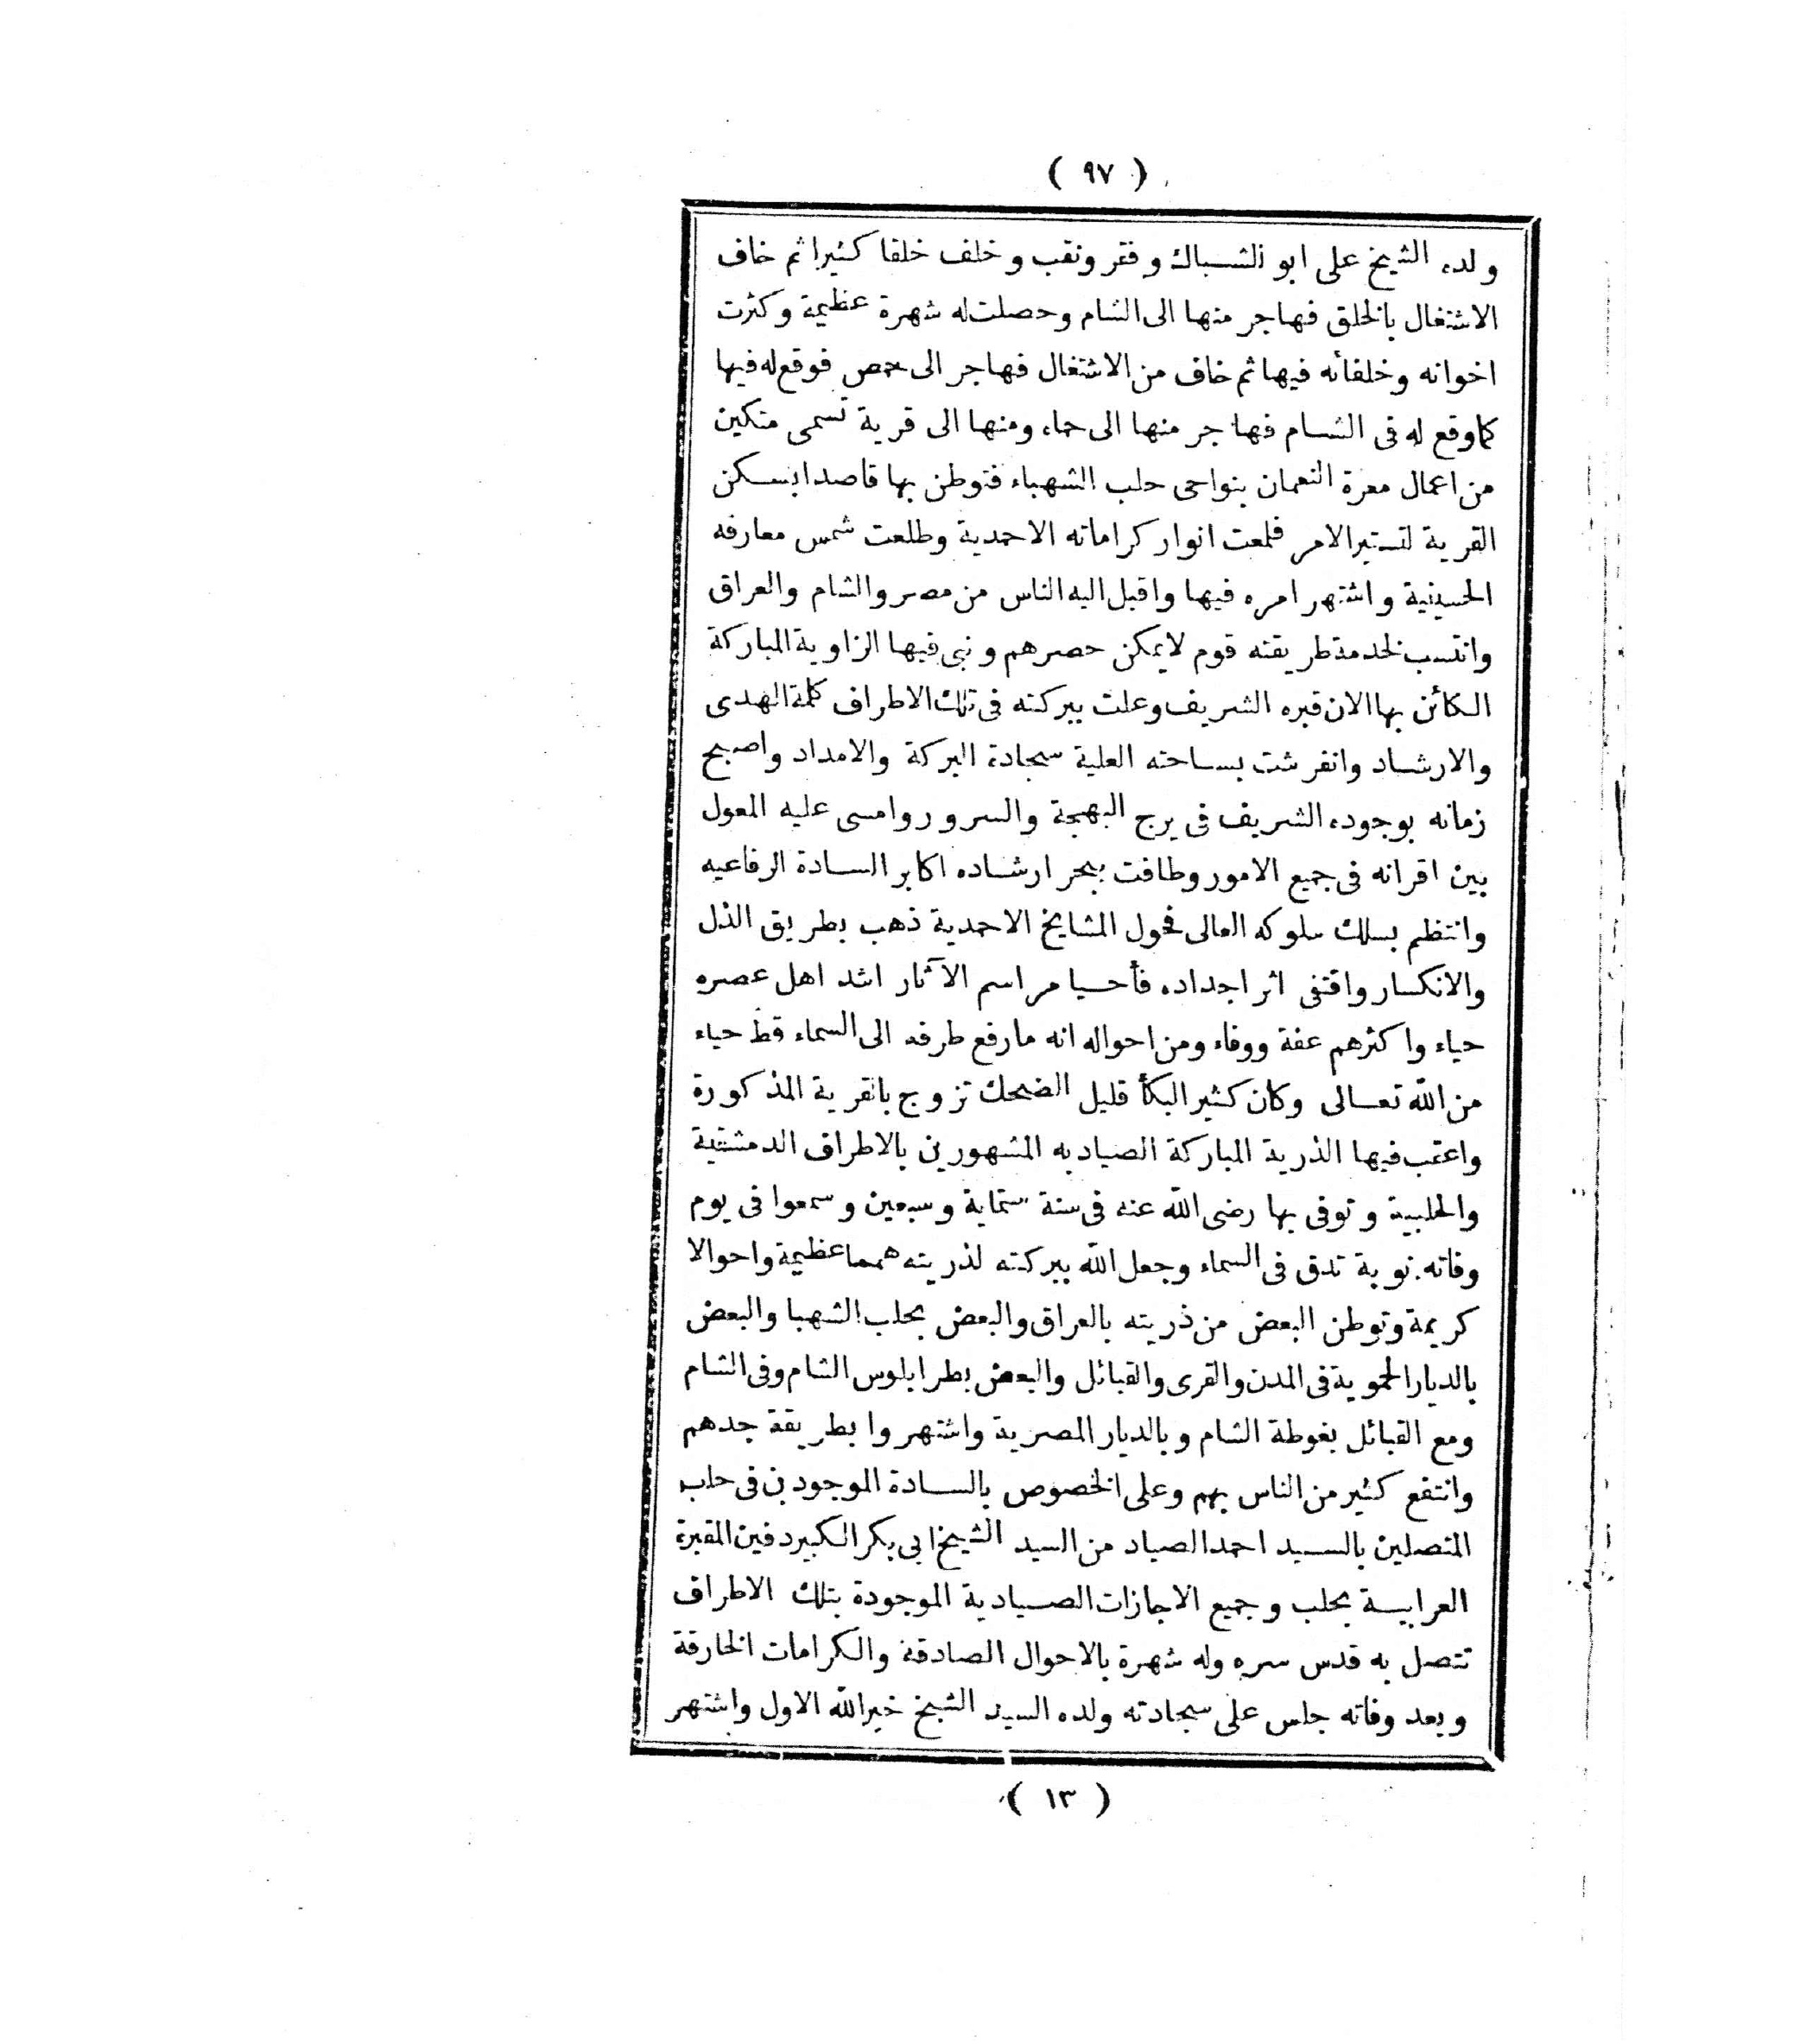 ( ٩٧ )
ولده الشيخ على ابو الشباك وفقر ونقب وخلف خلقا كثيرا ثم خاف
الاشتغال بالخلق فهاجر منها الى الشام وحصلت له شهرة عظيمة وكثرت
اخوانه وخلفائه فيها ثم خاف من الاشتغال فهاجر الى حمص فوقع له فيها
كما وقع له فى الشام فهاجر منها الى حماه ومنها الى قرية تسمى متكين
من اعمال معرة النعمان بنواحى حلب الشهباء فتوطن بها قاصدا بسكن
القرية لتستير الامر فلمعت انوار كراماته الاحمدية وطلعت شمس معارفه
الحسينية واشتهر امره فيها واقبل اليه الناس من مصر والشام والعراق
وانتسب لخدمة طريقته قوم لايمكن حصرهم وبنى فيها الزاوية المباركة
الكائن بها الان قبره الشريف وعلت ببركته فى تلك الاطراف كلمة الهدى
والارشاد وانفرشت بساحته العلية سجادة البركة والامداد واصبح
زمانه بوجوده الشريف فى برج البهجة والسرور وامسى عليه المعول
بين اقرانه فى جميع الامور وطافت ببحر ارشاده اكابر السادة الرفاعيه
وانتظم بسلك سلوكه العالى فحول المشايخ الاحمدية ذهب بطريق الذل
والانكسار واقتفى اثر اجداده فأحيا مراسم الآثار اشد اهل عصره
حياء واكثرهم عفة ووفاء ومن احواله انه مارفع طرفه الى السماء قط حياء
من الله تعالى وكان كثير البكأ قليل الضحك تزوج بالقرية المذكورة
واعقب فيها الذرية المباركة الصياديه المشهورين بالاطراف الدمشقية
والحلبية وتوفى بها رضى الله عنه فى سنة ستماية وسبعين وسمعوا فى يوم
وفاته نوبة تدق فى السماء وجعل الله ببركته لذريته همما عظيمة واحوالا
كريمة وتوطن البعض من ذريته بالعراق والبعض بحلب الشهبا والبعض
بالديار الحموية فى المدن والقرى والقبائل والبعض بطرابلوس الشام وفى الشام
ومع القبائل بغوطة الشام وبالديار المصرية واشتهروا بطريقة جدهم
وانتفع كثير من الناس بهم وعلى الخصوص بالسادة الموجودين فى حلب
المتصلين بالسيد احمد الصياد من السيد الشيخ ابى بكر الكبير دفين المقبرة
العرابية بحلب وجميع الاجازات الصيادية الموجودة بتلك الاطراف
تتصل به قدس سره وله شهرة بالاحوال الصادقة والكرامات الخارقة
وبعد وفاته جلس على سجادته ولده السيد الشيخ خيرالله الاول واشتهر
( ١٣ )